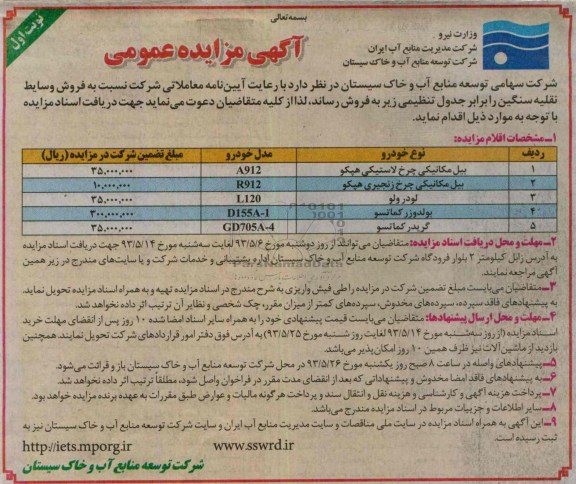 بسمه تعالی
نوبت اول
وزارت نیرو
شرکت مدیریت منابع آب ایران
شرکت توسعه منابع آب و خاک سیستان
آگهی مزایده عمومی
شرکت سهامی توسعه منابع آب و خاک سیستان در نظر دارد با رعایت آیین‌نامه معاملاتی شرکت نسبت به فروش وسایط
نقلیه سنگین را برابر جدول تنظیمی زیر به فروش رساند، لذا از کلیه متقاضیان دعوت می‌نماید جهت دریافت اسناد مزایده
با توجه به موارد ذیل اقدام نماید.
۱ـ مشخصات اقلام مزایده:
ردیف نوع خودرو مدل خودرو مبلغ تضمین شرکت در مزایده (ریال)
۱ بیل مکانیکی چرخ لاستیکی هپکو A912 ۳۵,۰۰۰,۰۰۰
۲ بیل مکانیکی چرخ زنجیری هپکو R912 ۱۰,۰۰۰,۰۰۰
۳ لودر ولو L120 ۳۵,۰۰۰,۰۰۰
۴ بولدوزر کماتسو D155A-1 ۳۰۰,۰۰۰,۰۰۰
۵ گریدر کماتسو GD705A-4 ۳۵,۰۰۰,۰۰۰
۲ـ مهلت و محل دریافت اسناد مزایده: متقاضیان می‌توانند از روز دوشنبه مورخ ۹۳/۵/۶ لغایت سه‌شنبه مورخ ۹۳/۵/۱۴ جهت دریافت اسناد مزایده
به آدرس زابل کیلومتر ۲ بلوار فرودگاه شرکت توسعه منابع آب و خاک سیستان اداره پشتیبانی و خدمات شرکت و یا سایت‌های مندرج در زیر همین
آگهی مراجعه نمایند.
۳ـ متقاضیان می‌بایست مبلغ تضمین شرکت در مزایده را طی فیش واریزی به شرح مندرج در اسناد مزایده تهیه و به همراه اسناد مزایده تحویل نماید.
به پیشنهادهای فاقد سپرده، سپرده‌های مخدوش، سپرده‌های کمتر از میزان مقرر، چک شخصی و نظایر آن ترتیب اثر داده نخواهد شد.
۴ـ مهلت و محل ارسال پیشنهادها: متقاضیان می‌بایست قیمت پیشنهادی خود را به همراه سایر اسناد امضا شده ۱۰ روز پس از انقضای مهلت خرید
اسناد مزایده (از روز سه‌شنبه مورخ ۹۳/۵/۱۴ لغایت روز شنبه مورخ ۹۳/۵/۲۵) به آدرس فوق دفتر امور قراردادهای شرکت تحویل نمایند. همچنین
بازدید از ماشین‌آلات نیز ظرف همین ۱۰ روز امکان‌پذیر می‌باشد.
۵ـ پیشنهادهای واصله در ساعت ۸ صبح روز یکشنبه مورخ ۹۳/۵/۲۶ در محل شرکت توسعه منابع آب و خاک سیستان باز و قرائت می‌شود.
۶ـ به پیشنهادهای فاقد امضا مخدوش و پیشنهاداتی که بعد از انقضای مدت مقرر در فراخوان واصل شود، مطلقاً ترتیب اثر داده نخواهد شد.
۷ـ پرداخت هزینه آگهی و کارشناسی و هزینه نقل و انتقال سند و پرداخت هرگونه مالیات و عوارض طبق مقررات به عهده برنده مزایده خواهد بود.
۸ـ سایر اطلاعات و جزییات مربوط در اسناد مزایده مندرج می‌باشد.
۹ـ این آگهی به همراه اسناد مزایده در سایت ملی مناقصات و سایت مدیریت منابع آب ایران و سایت شرکت توسعه منابع آب و خاک سیستان نیز به
ثبت رسیده است.
http://iets.mporg.ir www.sswrd.ir
شرکت توسعه منابع آب و خاک سیستان